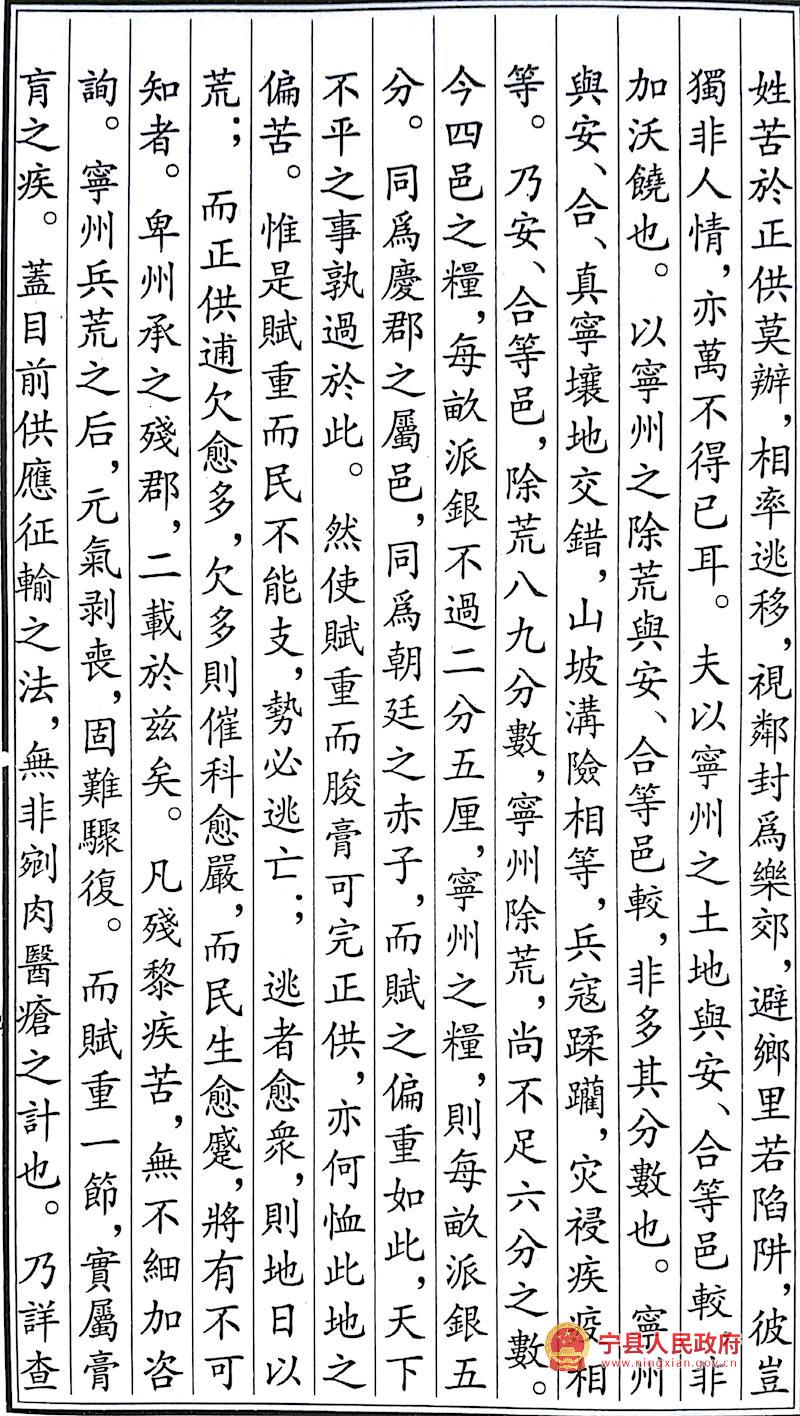 姓苦於正供莫辦，相率逃移，視鄰封爲樂郊，避鄉里若陷阱，彼豈
獨非人情，亦萬不得已耳。夫以寧州之土地與安、合等邑較，非
加沃饒也。以寧州之除荒與安、合等邑較，非多其分數也。寧州
與安、合、真寧壤地交錯，山坡溝險相等，兵寇蹂躪，灾祲疾疫相
等。乃安、合等邑，除荒八九分數，寧州除荒，尚不足六分之數。
今四邑之糧，每畝派銀不過二分五厘，寧州之糧，則每畝派銀五
分。同爲慶郡之屬邑，同爲朝廷之赤子，而賦之偏重如此，天下
不平之事孰過於此。然使賦重而朘膏可完正供，亦何恤此地之
偏苦。惟是賦重而民不能支，勢必逃亡；逃者愈衆，則地日以
荒；而正供逋欠愈多，欠多則催科愈嚴，而民生愈蹙，將有不可
知者。卑州承之殘郡，二載於兹矣。凡殘黎疾苦，無不細加咨
詢。寧州兵荒之后，元氣剥喪，固難驟復。而賦重一節，實屬膏
肓之疾。蓋目前供應征輸之法，無非剜肉醫瘡之計也。乃詳查
宁县人民政府
www.ningxian.gov.cn